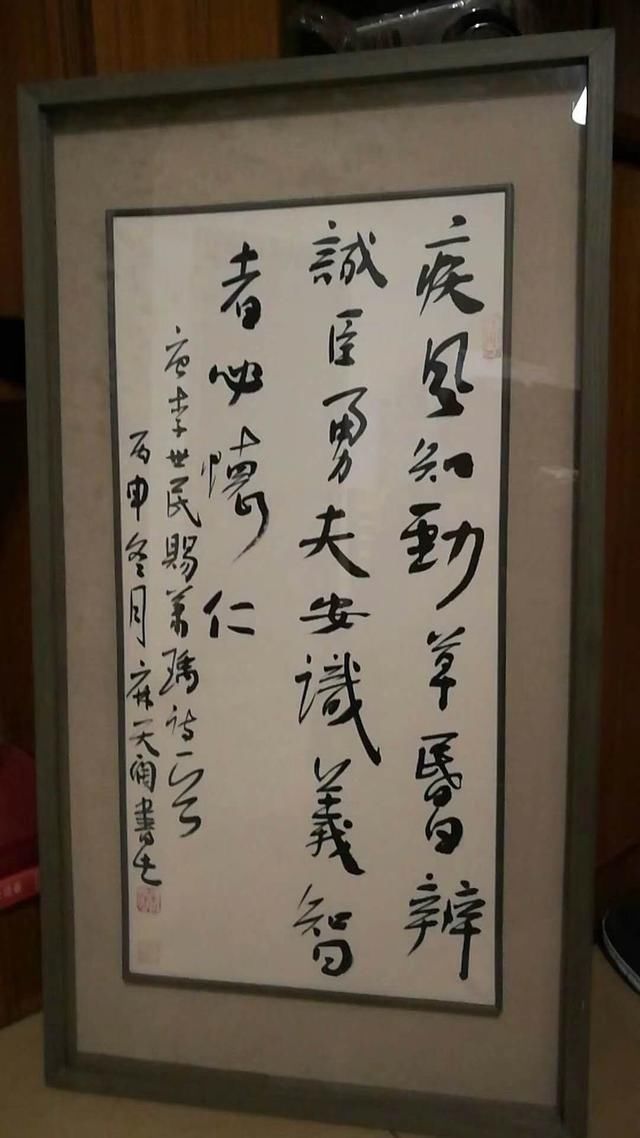 疾風知勁草昬辨
誠臣勇夫安識義智
者必懷仁
唐李世民賜蕭瑀詩一首
丙申冬月麻天阔書